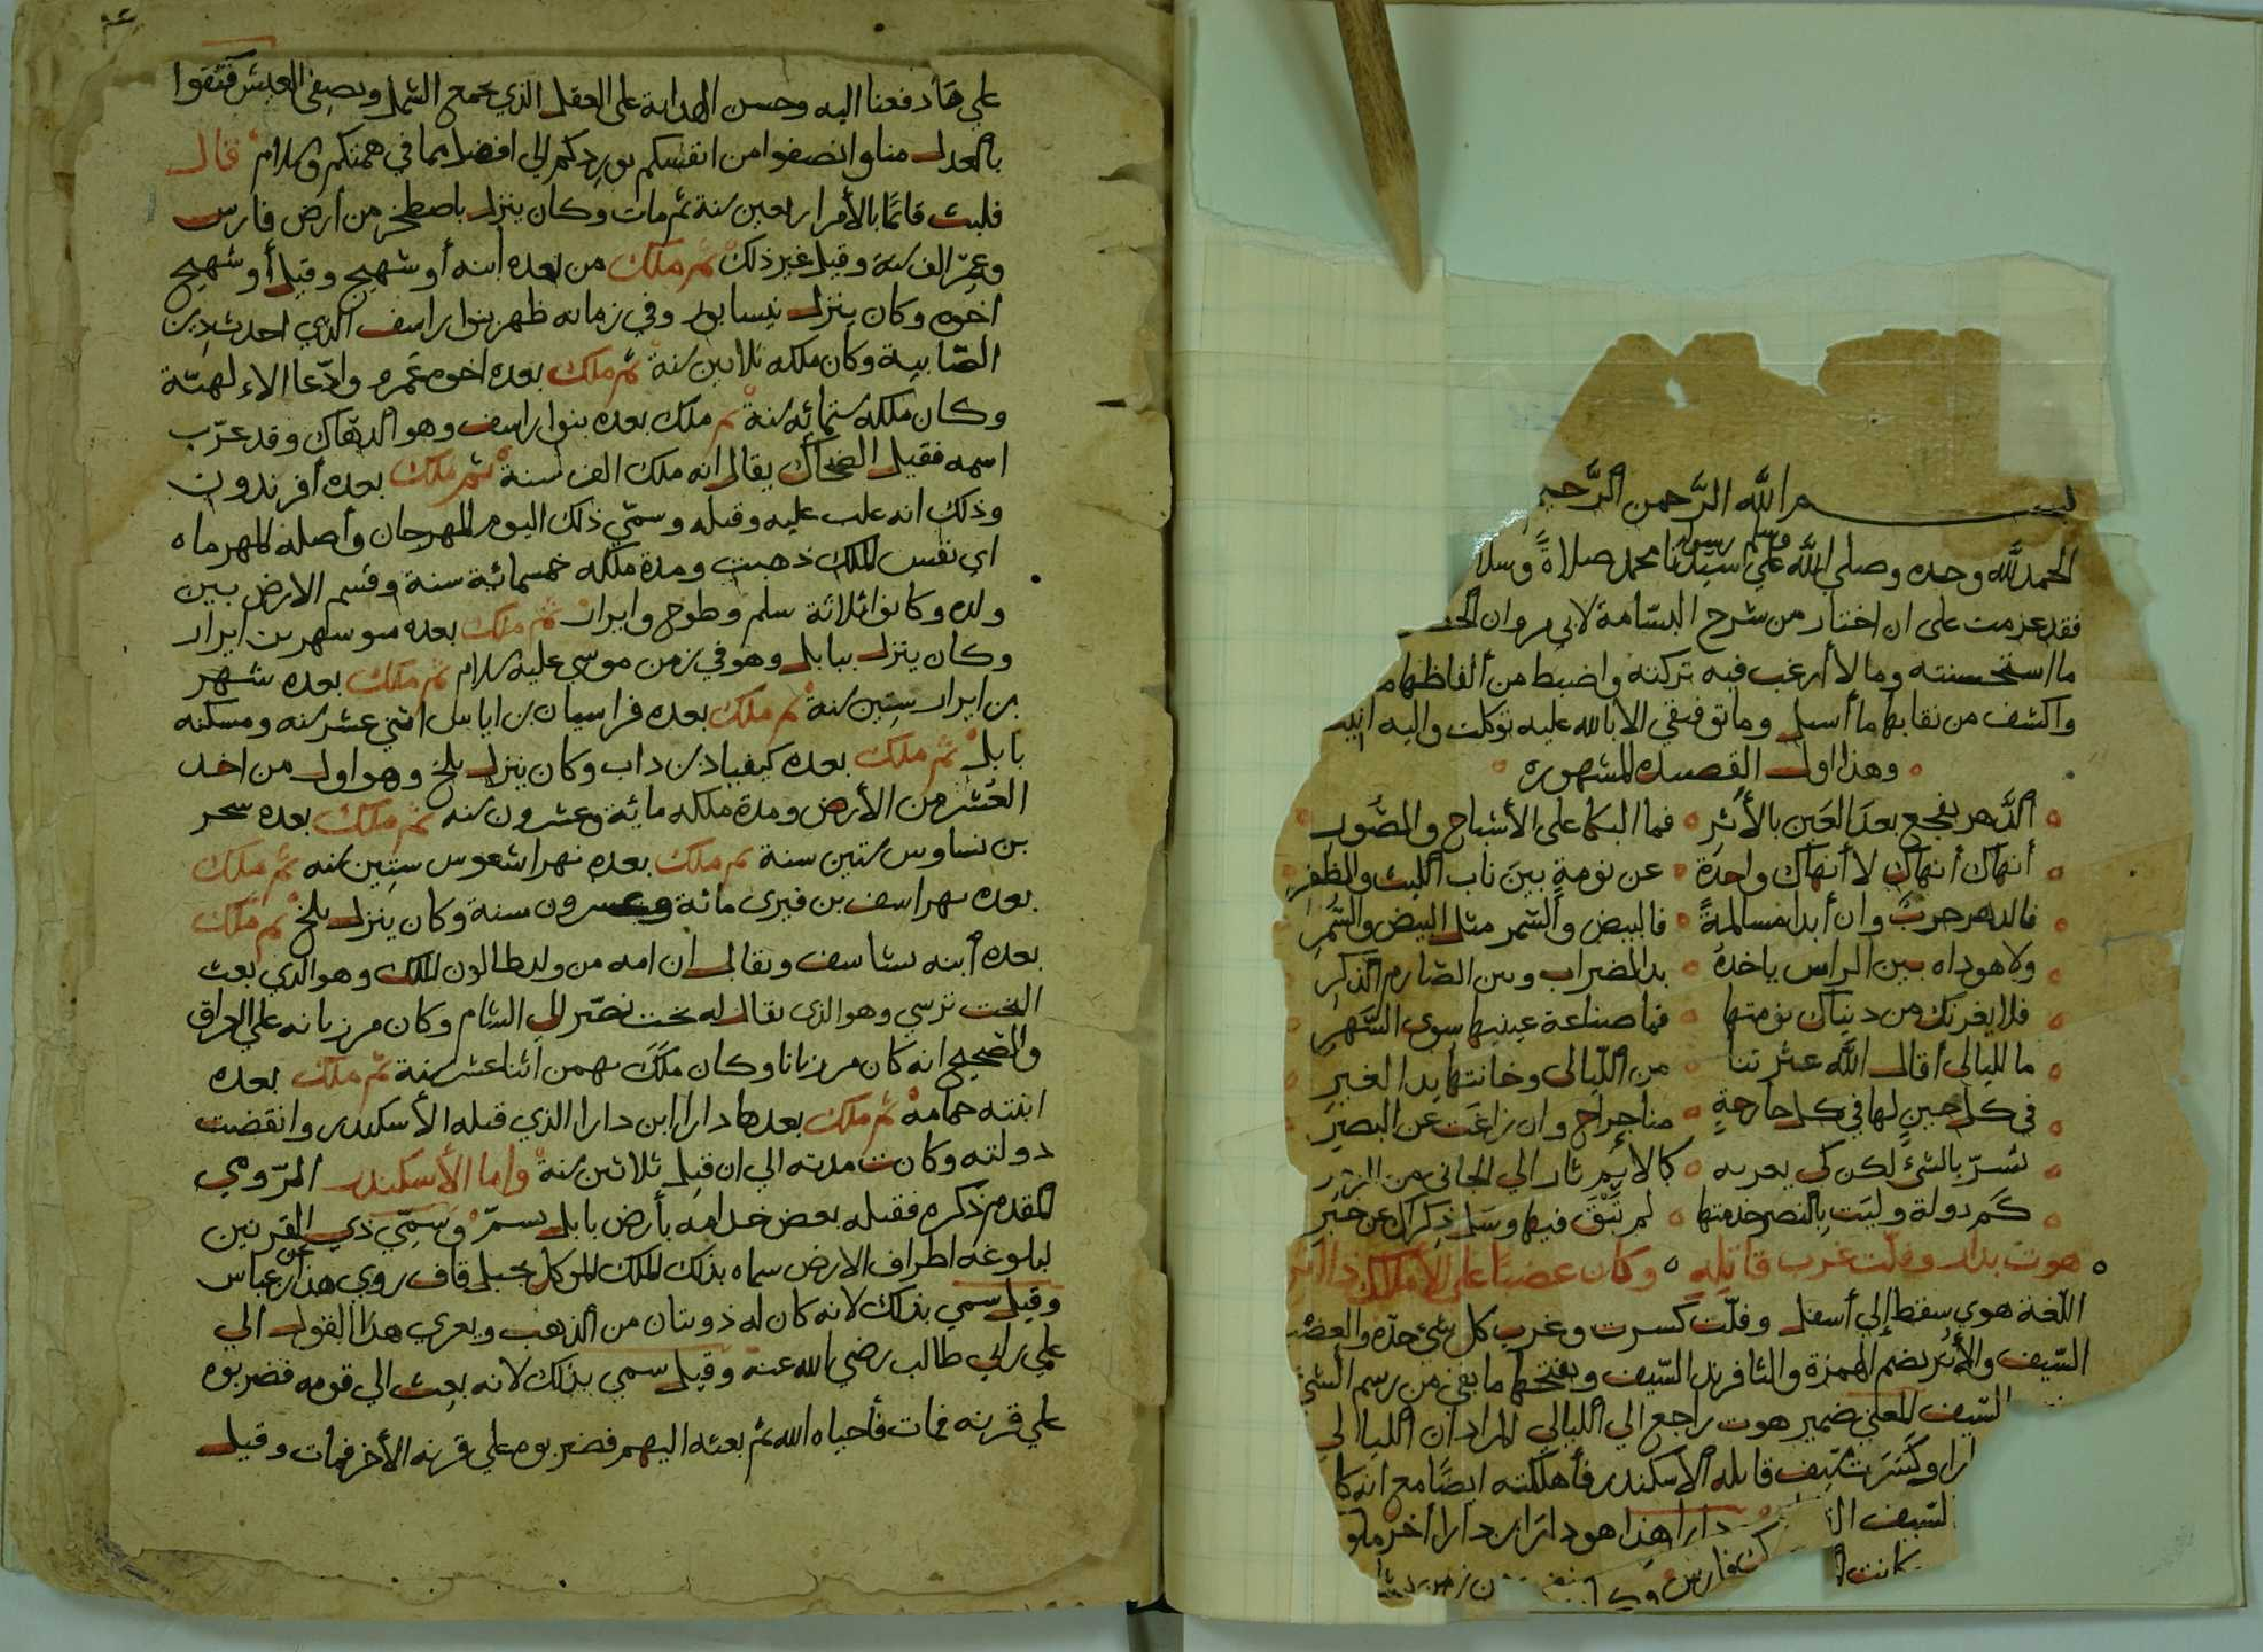 بسم الله الرحمن الرحيم
الحمد لله وحده وصلي الله وسلم علي سيدنا رسوله محمد صلاة وسلا
فقد عزمت على ان اختار من شرح البسامة لابي مروان
ما استحسنته وما لا أرغب فيه تركته واضبط من ألفاظها
واكشف من نقابها ما أسبل وما توفيقي الا بالله عليه توكلت واليه انيب
وهذا اول القصيده المشهوره
ألدهر يفجع بعد العين بالأثر فما البكا على الأشباح والصور
أنهاك أنهاك لا أنهاك واحدة عن نومة بين ناب الليث والظفر
فالدهر حرب وان أبدا مسالمة فالبيض والسمر مثل البيض والسمر
ولا هوداه بين الراس ياخذه يد الضراب وبين الصارم الذكر
فلا يغرنك من دنياك نومتها فما صناعة عينيها سوى السهر
ما لليالي أقال الله عثرتنا من الليالى وخانتها يد الغير
في كل حين لها في كل جارحة منا جراح وان زاغت عن البصر
تسر بالشئ لكن كي يغر به كالأيم ثار الي الجانى من الزهر
كم دولة وليت بالنصر خدمتها لم تبق فيها وسل ذكراك عن خبر
هوت بدار وفلت غرب قاتله وكان عضبا على الأملاك ذا اثر
اللغة هوي سقط إلي أسفل وفلت كسرت وغرب كل شئ حده والعضب
السيف والأثر بضم الهمزة والثا فرند السيف وبفتحها ما بقي من رسم الشئ
السيف المعني ضمير هوت راجع الي الليالي المراد ان الليالي
ارا وكسرت سيف قاتله الاسكندر فأهلكته ايضا مع انه كا
السيف دارا هذا هو دارا بن دارا أخر ملو
كانت ك فارس
علي ما دفعنا اليه وحسن الهداية على العقل الذي يجمع الشمل ويصفى العيش فثقوا
بالعدل منا وانصفوا من انفسكم نوردكم إلي افضل مما في همتكم والسلام قال
فلبث قائما بالأمر اربعين سنة ثم مات وكان ينزل باصطخر من أرض فارس
وعمر الف سنة وقيل غير ذلك ثم ملك من بعده أبنه أوشهيج وقيل أوشهيج
اخوه وكان ينزل نيسابور وفي زمانه ظهر بنوا راسف الذي احدث دين
الصابية وكان ملكه ثلاثين سنة ثم ملك بعده اخوه عمره وادعا الاءلهية
وكان ملكه ستمائه سنة ثم ملك بعده بنوا راسف وهو الدهاك وقد عرب
اسمه فقيل الضحاك يقال انه ملك الف سنة ثم ملك بعده أفرندون
وذلك انه غلب عليه وقتله وسمي ذلك اليوم المهرجان وأصله المهرماه
اي نفس الملك ذهبت ومدة ملكه خمسمائية سنة وقسم الارض بين
ولده وكانوا ثلاثة سلم وطوج وايرار ثم ملك بعده ايرار
وكان ينزل ببابل وهو في زمن موسي عليه السلام ثم ملك بعده شهر
بن ايرار ستين سنة ثم ملك بعده فراسيان بن اياس اثني عشر سنه ومسكنه
بابل ثم ملك بعده كيقباد بن داب وكان ينزل بلخ وهو اول من اخد
العشر من الأرض ومدة ملكه مائية وعشرون سنه ثم ملك بعده
بن ستين سنة ثم ملك بعده ستين سنه ثم ملك
بعده بهراسف بن مائة وعشرون سنة وكان ينزل بلخ ثم ملك
بعده أبنه بشاسف ويقال ان امه من ولد طالوت الملك وهو الذي بعث
البخت نرسي وهو الذى يقال له بخت نصر إلي الشام وكان مرزبانه علي العراق
والصحيح انه كان مرزبانا وكان ملك بهمن اثنا عشر سنة ثم ملك بعده
ابنته حمامة ثم ملك بعدها دارا ابن دارا الذي قتله الأسكندر وانقضت
دولته وكانت مدته الي ان قتل ثلاثين سنة واما الأسكندر الرومي
المقدم ذكره فقتله بعض خدامه بأرض بابل بسم وسمي ذي القرنين
لبلوغه اطراف الارض سماه بذلك الملك الموكل بجبل قاف روي هذا عن ابن عباس
وقيل سمي بذلك لانه كان له ذوبتان من ألذهب ويعزي هذا القول الي
علي ابن ابي طالب رضي الله عنه وقيل سمي بذلك لانه بعث الي قومه فضربوه
علي قرنه فمات فأحياه الله ثم بعثه اليهم فضربوه علي قرنه الأخر فمات وقيل